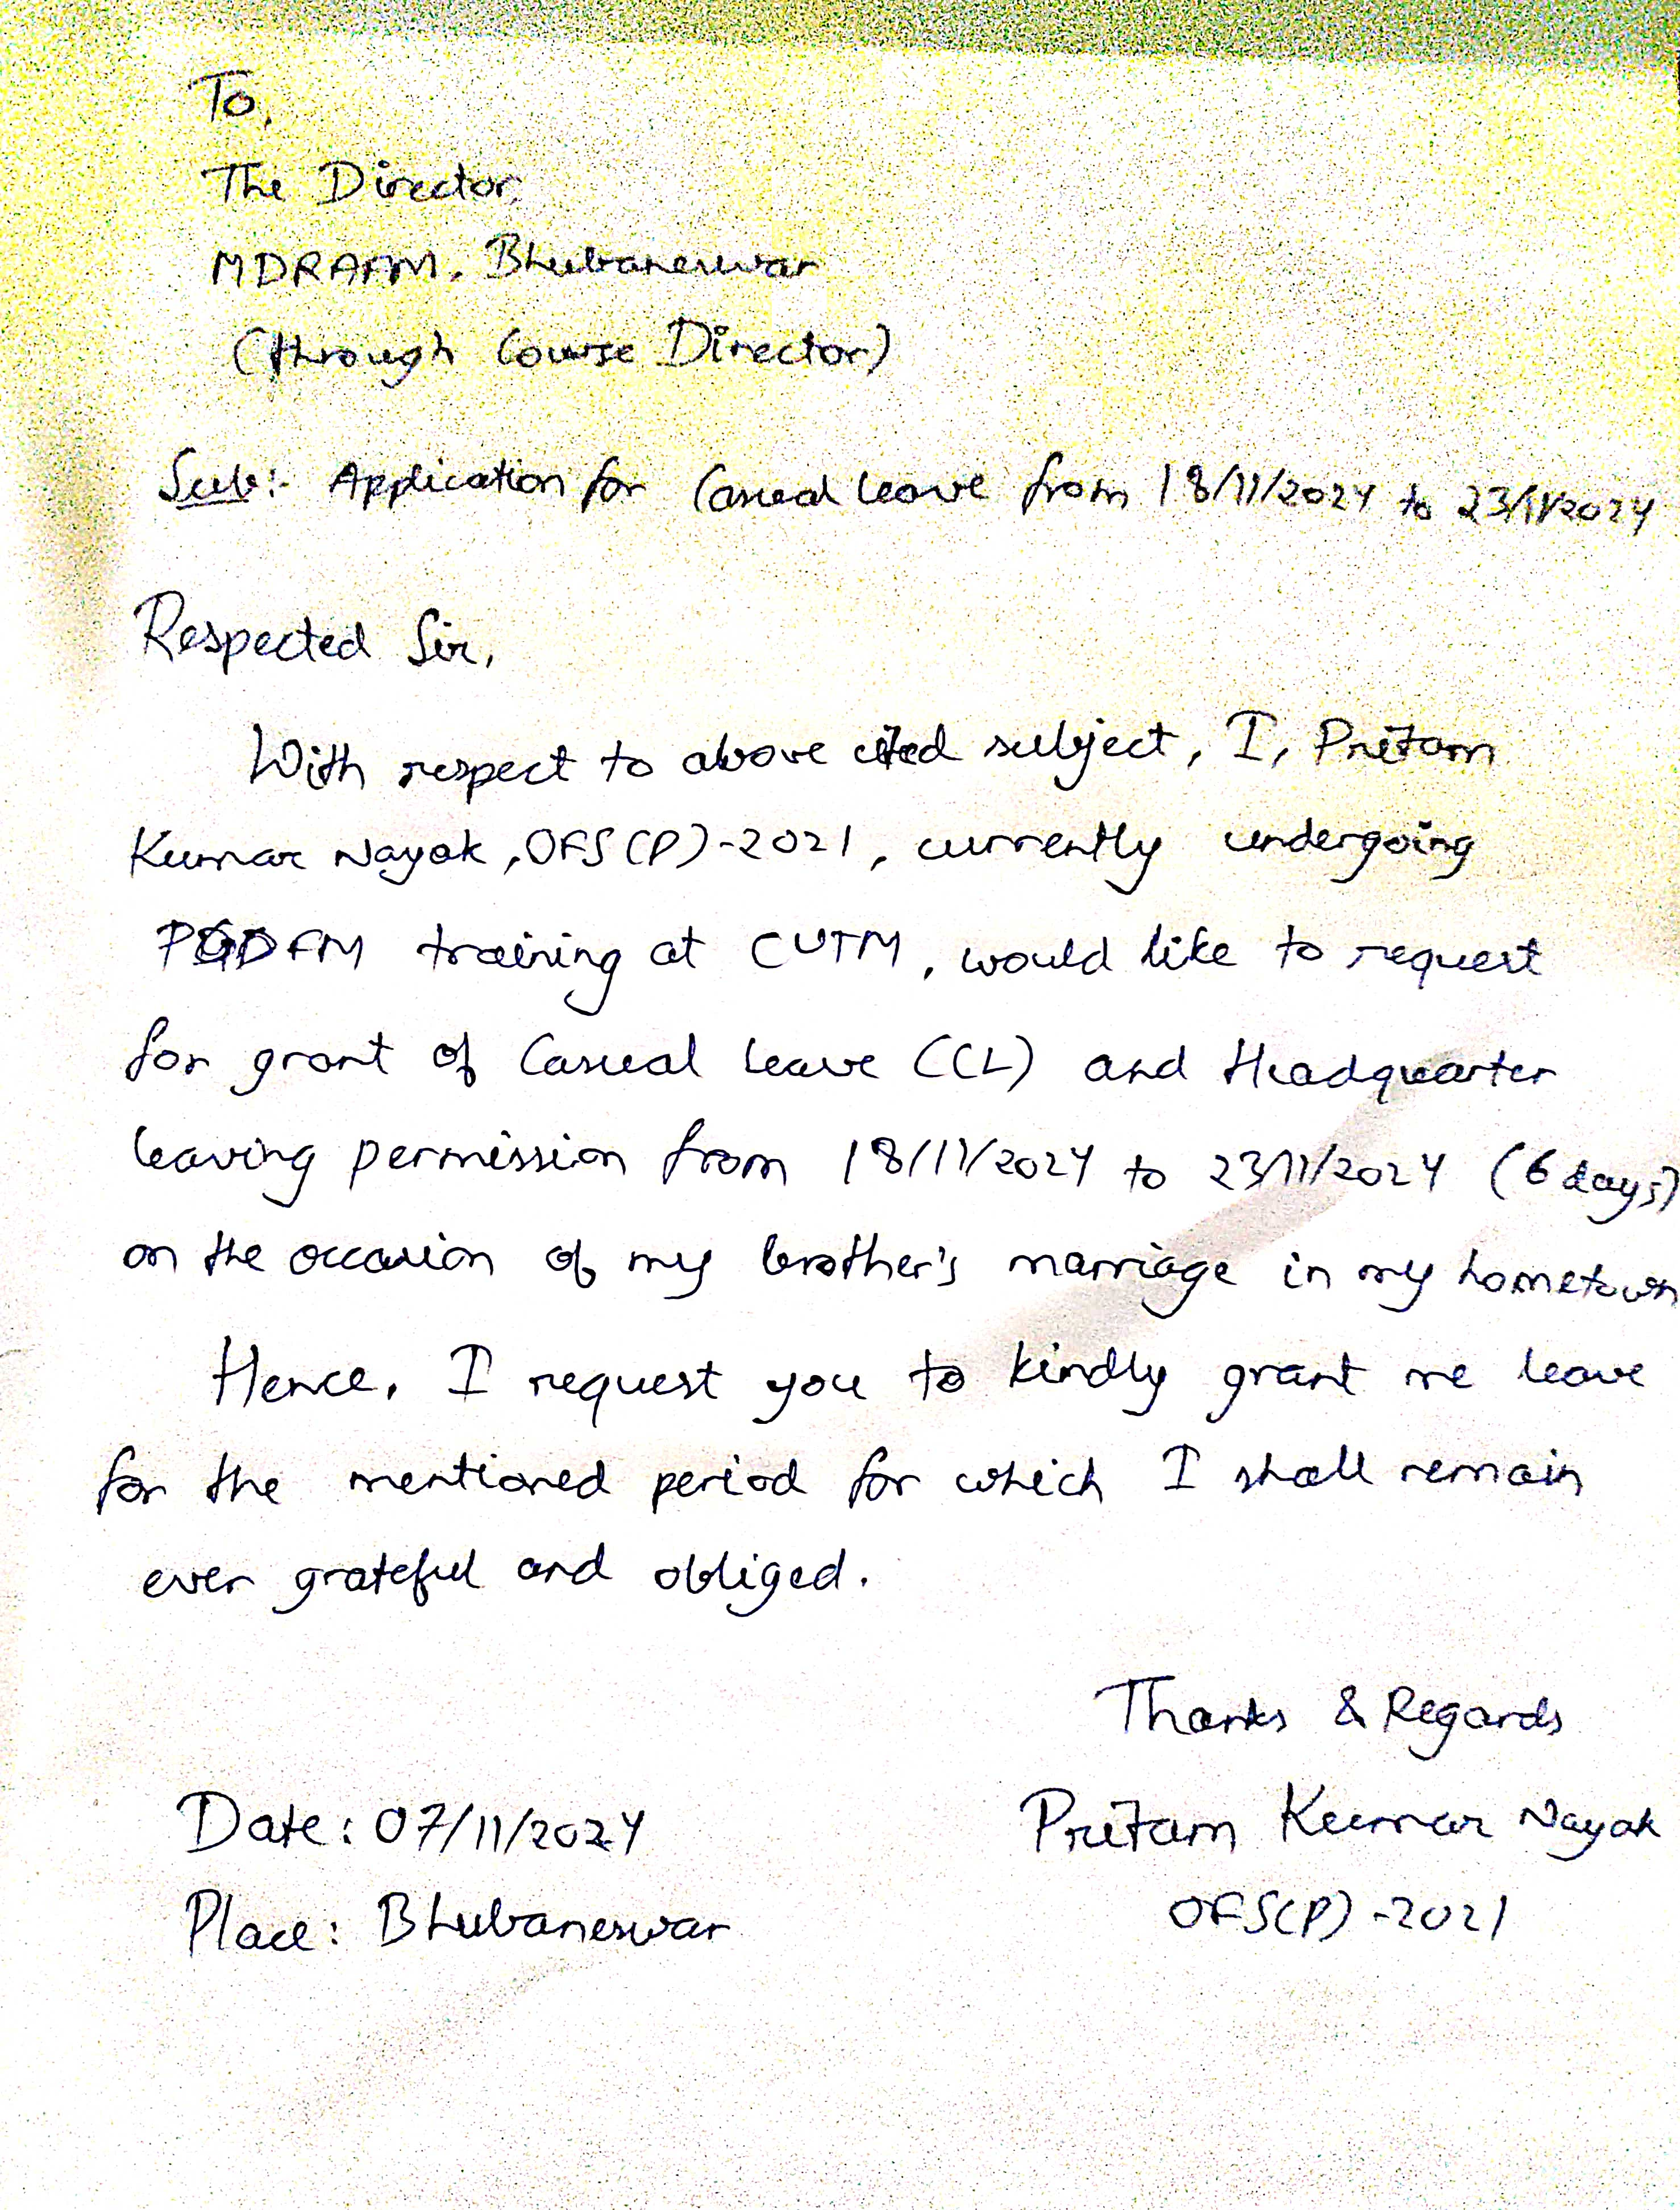 To,
The Director,
MDRAFM, Bhubaneswar
(through Course Director)
Sub:- Application for Casual leave from 18/11/2024 to 23/11/2024
Respected Sir,
With respect to above cited subject, I, Pritam
Kumar Nayak, OFS(P)-2021, currently undergoing
PGDFM training at CUTM, would like to request
for grant of Casual leave (CL) and Headquarter
leaving permission from 18/11/2024 to 23/11/2024 (6 days)
on the occasion of my brother's marriage in my hometown
Hence, I request you to kindly grant me leave
for the mentioned period for which I shall remain
ever grateful and obliged.
Thanks & Regards
Date: 07/11/2024 Pritam Kumar Nayak
Place: Bhubaneswar OFS(P)-2021